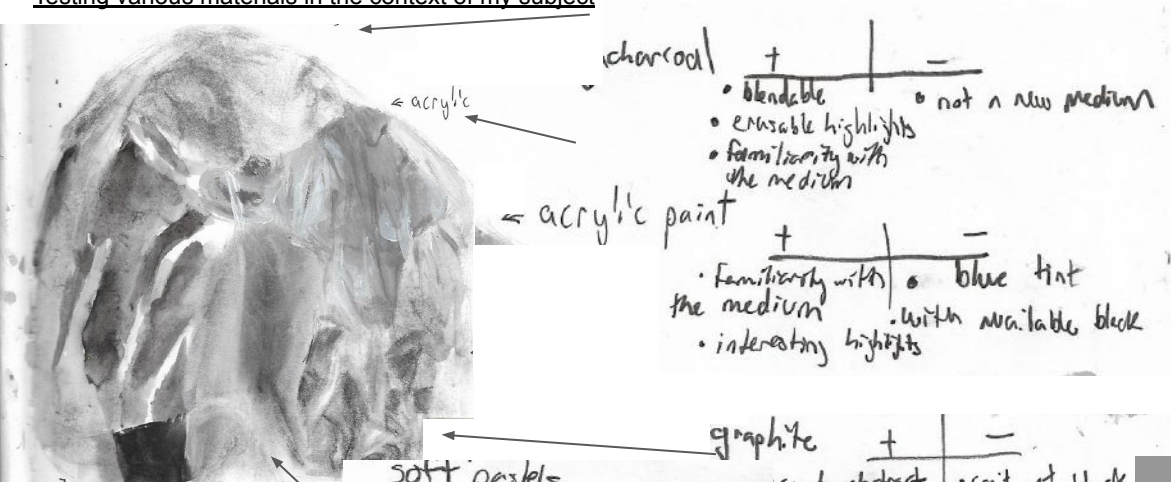 Testing various materials in the context of my subject
charcoal + -
• blendable
• erasable highlights
• familiarity with
the medium
• not a new medium
← acrylic
← acrylic paint
+ -
• familiarity with
the medium
• interesting highlights
• blue tint
• with available black
graphite + -
soft pastels